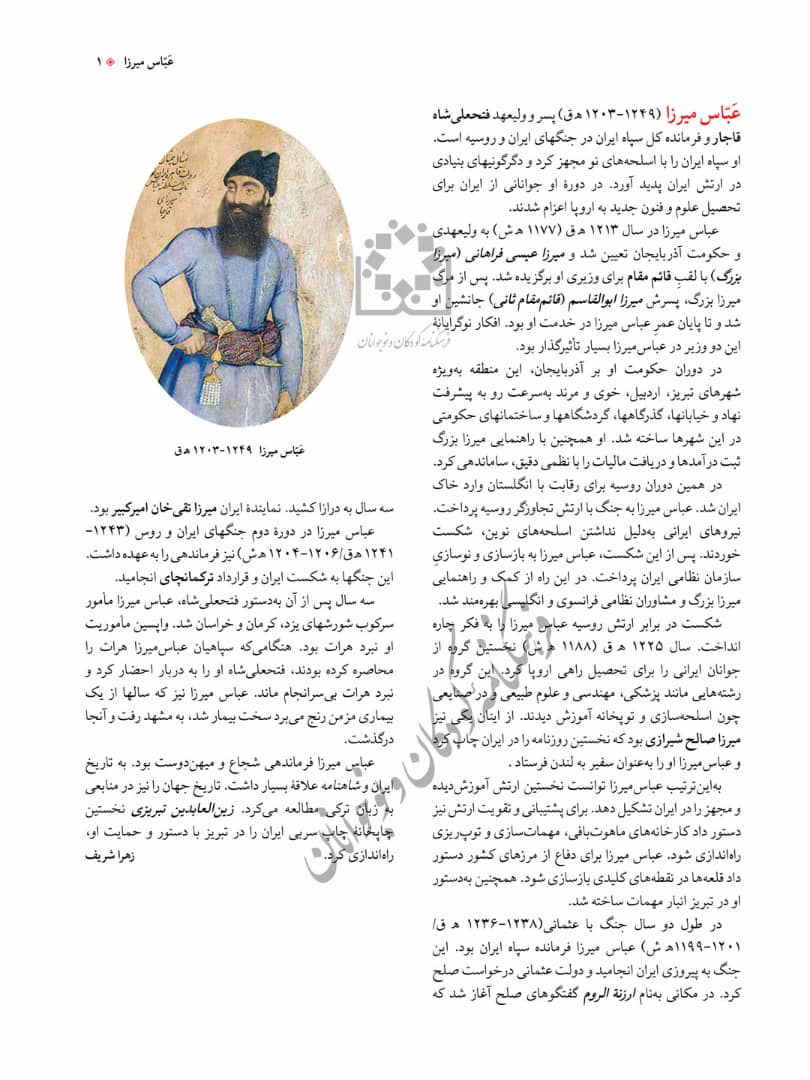 عَبّاس میرزا ۱
عَبّاس میرزا (۱۲۴۹-۱۲۰۳ ه‍ ق) پسر و ولیعهد فتحعلی‌شاه
قاجار و فرمانده کل سپاه ایران در جنگهای ایران و روسیه است.
او سپاه ایران را با اسلحه‌های نو مجهز کرد و دگرگونیهای بنیادی
در ارتش ایران پدید آورد. در دورهٔ او جوانانی از ایران برای
تحصیل علوم و فنون جدید به اروپا اعزام شدند.
عباس میرزا در سال ۱۲۱۳ ه‍ ق (۱۱۷۷ ه‍ ش) به ولیعهدی
و حکومت آذربایجان تعیین شد و میرزا عیسی فراهانی (میرزا
بزرگ) با لقبِ قائم مقام برای وزیری او برگزیده شد. پس از مرگ
میرزا بزرگ، پسرش میرزا ابوالقاسم (قائم‌مقام ثانی) جانشین او
شد و تا پایان عمرِ عباس میرزا در خدمت او بود. افکار نوگرایانهٔ
این دو وزیر در عباس‌میرزا بسیار تأثیرگذار بود.
در دوران حکومت او بر آذربایجان، این منطقه به‌ویژه
شهرهای تبریز، اردبیل، خوی و مرند به‌سرعت رو به پیشرفت
نهاد و خیابانها، گذرگاهها، گردشگاهها و ساختمانهای حکومتی
در این شهرها ساخته شد. او همچنین با راهنمایی میرزا بزرگ
ثبت درآمدها و دریافت مالیات را با نظمی دقیق، ساماندهی کرد.
در همین دوران روسیه برای رقابت با انگلستان وارد خاک
ایران شد. عباس میرزا به جنگ با ارتش تجاوزگر روسیه پرداخت.
نیروهای ایرانی به‌دلیل نداشتن اسلحه‌های نوین، شکست
خوردند. پس از این شکست، عباس میرزا به بازسازی و نوسازیِ
سازمان نظامی ایران پرداخت. در این راه از کمک و راهنمایی
میرزا بزرگ و مشاوران نظامی فرانسوی و انگلیسی بهره‌مند شد.
شکست در برابر ارتش روسیه عباس میرزا را به فکر چاره
انداخت. سال ۱۲۲۵ ه‍ ق (۱۱۸۸ ه‍ ش) نخستین گروه از
جوانان ایرانی را برای تحصیل راهی اروپا کرد. این گروه در
رشته‌هایی مانند پزشکی، مهندسی و علوم طبیعی و در صنایعی
چون اسلحه‌سازی و توپخانه آموزش دیدند. از اینان یکی نیز
میرزا صالح شیرازی بود که نخستین روزنامه را در ایران چاپ کرد
و عباس‌میرزا او را به‌عنوان سفیر به لندن فرستاد .
به‌این‌ترتیب عباس‌میرزا توانست نخستین ارتش آموزش‌دیده
و مجهز را در ایران تشکیل دهد. برای پشتیبانی و تقویت ارتش نیز
دستور داد کارخانه‌های ماهوت‌بافی، مهمات‌سازی و توپ‌ریزی
راه‌اندازی شود. عباس میرزا برای دفاع از مرزهای کشور دستور
داد قلعه‌ها در نقطه‌های کلیدی بازسازی شود. همچنین به‌دستور
او در تبریز انبار مهمات ساخته شد.
در طول دو سال جنگ با عثمانی(۱۲۳۸-۱۲۳۶ ه‍ ق/
۱۲۰۱-۱۱۹۹ه‍ ش) عباس میرزا فرمانده سپاه ایران بود. این
جنگ به پیروزی ایران انجامید و دولت عثمانی درخواست صلح
کرد. در مکانی به‌نام ارزنة الروم گفتگوهای صلح آغاز شد که
فرهنگنامه کودکان و نوجوانان
عَبّاس میرزا ۱۲۴۹-۱۲۰۳ ه‍ ق
سه سال به درازا کشید. نمایندهٔ ایران میرزا تقی‌خان امیرکبیر بود.
عباس میرزا در دورهٔ دوم جنگهای ایران و روس (۱۲۴۳-
۱۲۴۱ ه‍ ق/۱۲۰۶-۱۲۰۴ ه‍ ش) نیز فرماندهی را به عهده داشت.
این جنگها به شکست ایران و قرارداد ترکمانچای انجامید.
سه سال پس از آن به‌دستور فتحعلی‌شاه، عباس میرزا مأمور
سرکوب شورشهای یزد، کرمان و خراسان شد. واپسین مأموریت
او نبرد هرات بود. هنگامی‌که سپاهیان عباس‌میرزا هرات را
محاصره کرده بودند، فتحعلی‌شاه او را به دربار احضار کرد و
نبرد هرات بی‌سرانجام ماند. عباس میرزا نیز که سالها از یک
بیماری مزمن رنج می‌برد سخت بیمار شد، به مشهد رفت و آنجا
درگذشت.
عباس میرزا فرماندهی شجاع و میهن‌دوست بود. به تاریخ
ایران و شاهنامه علاقهٔ بسیار داشت. تاریخ جهان را نیز در منابعی
به زبان ترکی مطالعه می‌کرد. زین‌العابدین تبریزی نخستین
چاپخانهٔ چاپ سربی ایران را در تبریز با دستور و حمایت او،
راه‌اندازی کرد. زهرا شریف
فرهنگنامه کودکان و نوجوانان